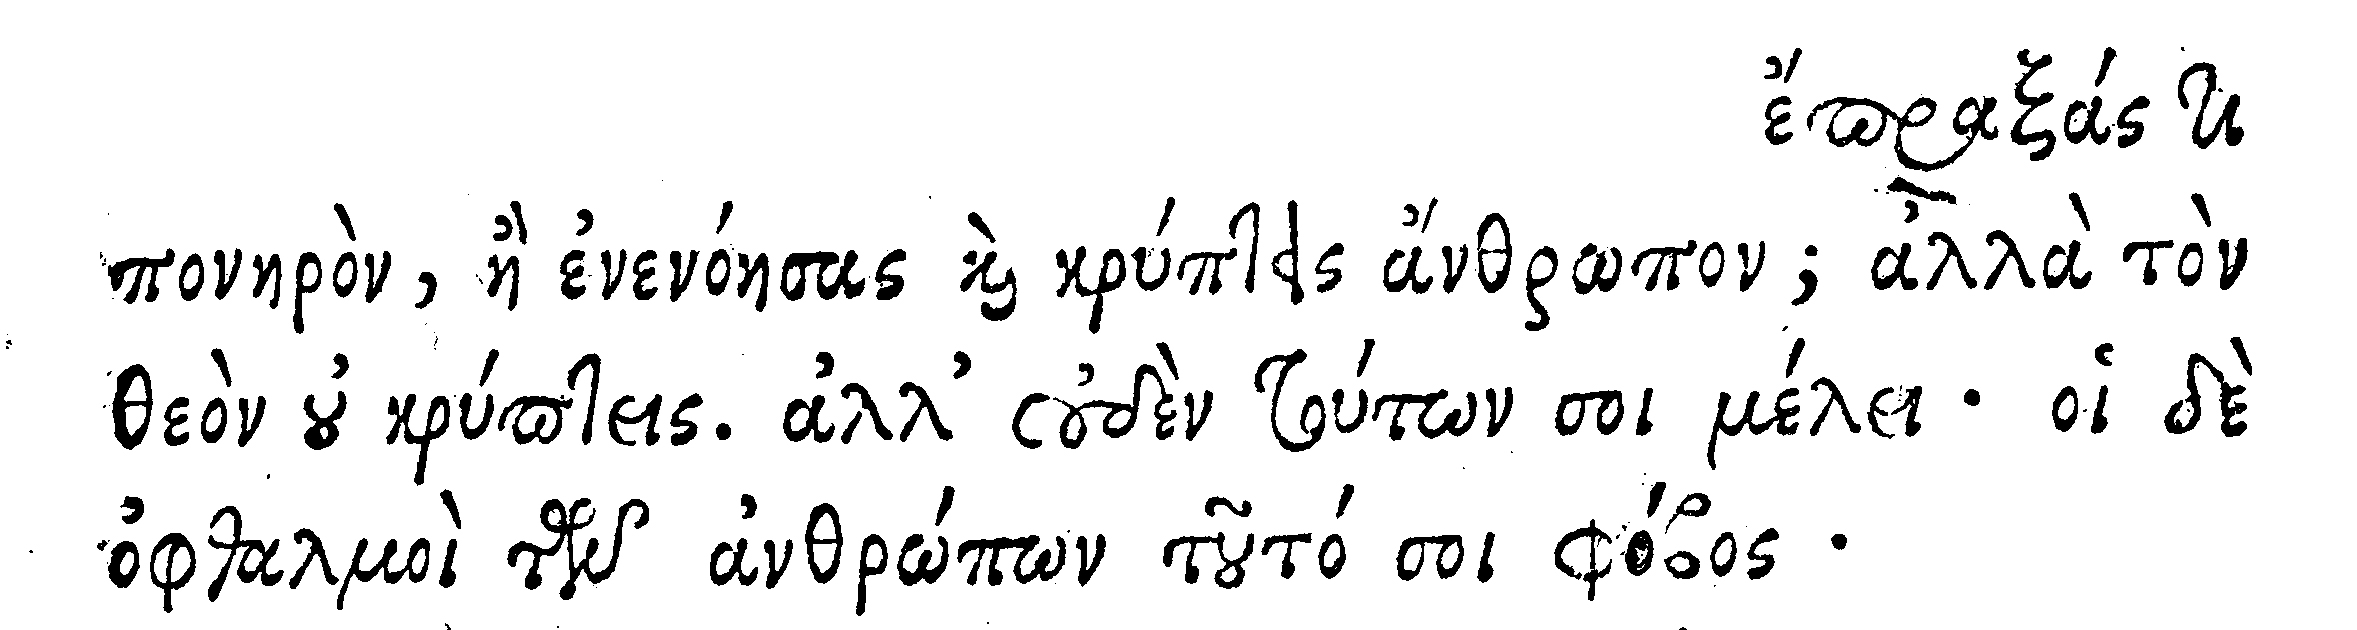 ἔπραξάς τι
πονηρὸν, ἢ ἐνενόησας καὶ κρύπτεις ἄνθρωπον; ἀλλὰ τὸν
θεὸν οὐ κρύπτεις. ἀλλ’ οὐδὲν τούτων σοι μέλει· οἱ δὲ
ὀφθαλμοὶ τῶν ἀνθρώπων τοῦτό σοι φόβος·